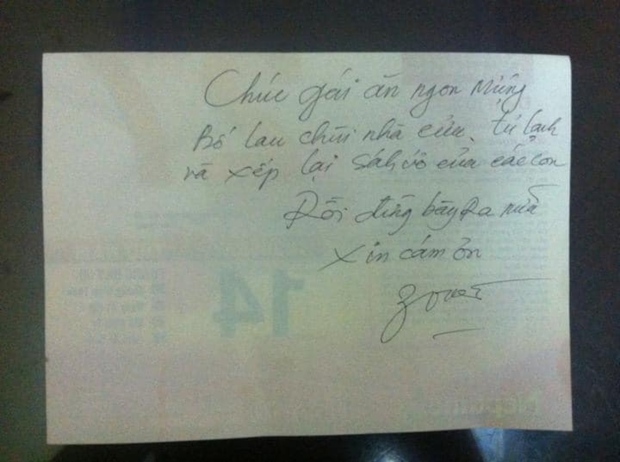 Chúc gái ăn ngon miệng
Bố lau chùi nhà cửa. tủ lạnh
và xếp lại sách vở của các con
Rồi đừng bày ra nữa
Xin cám ơn
14
Neptune